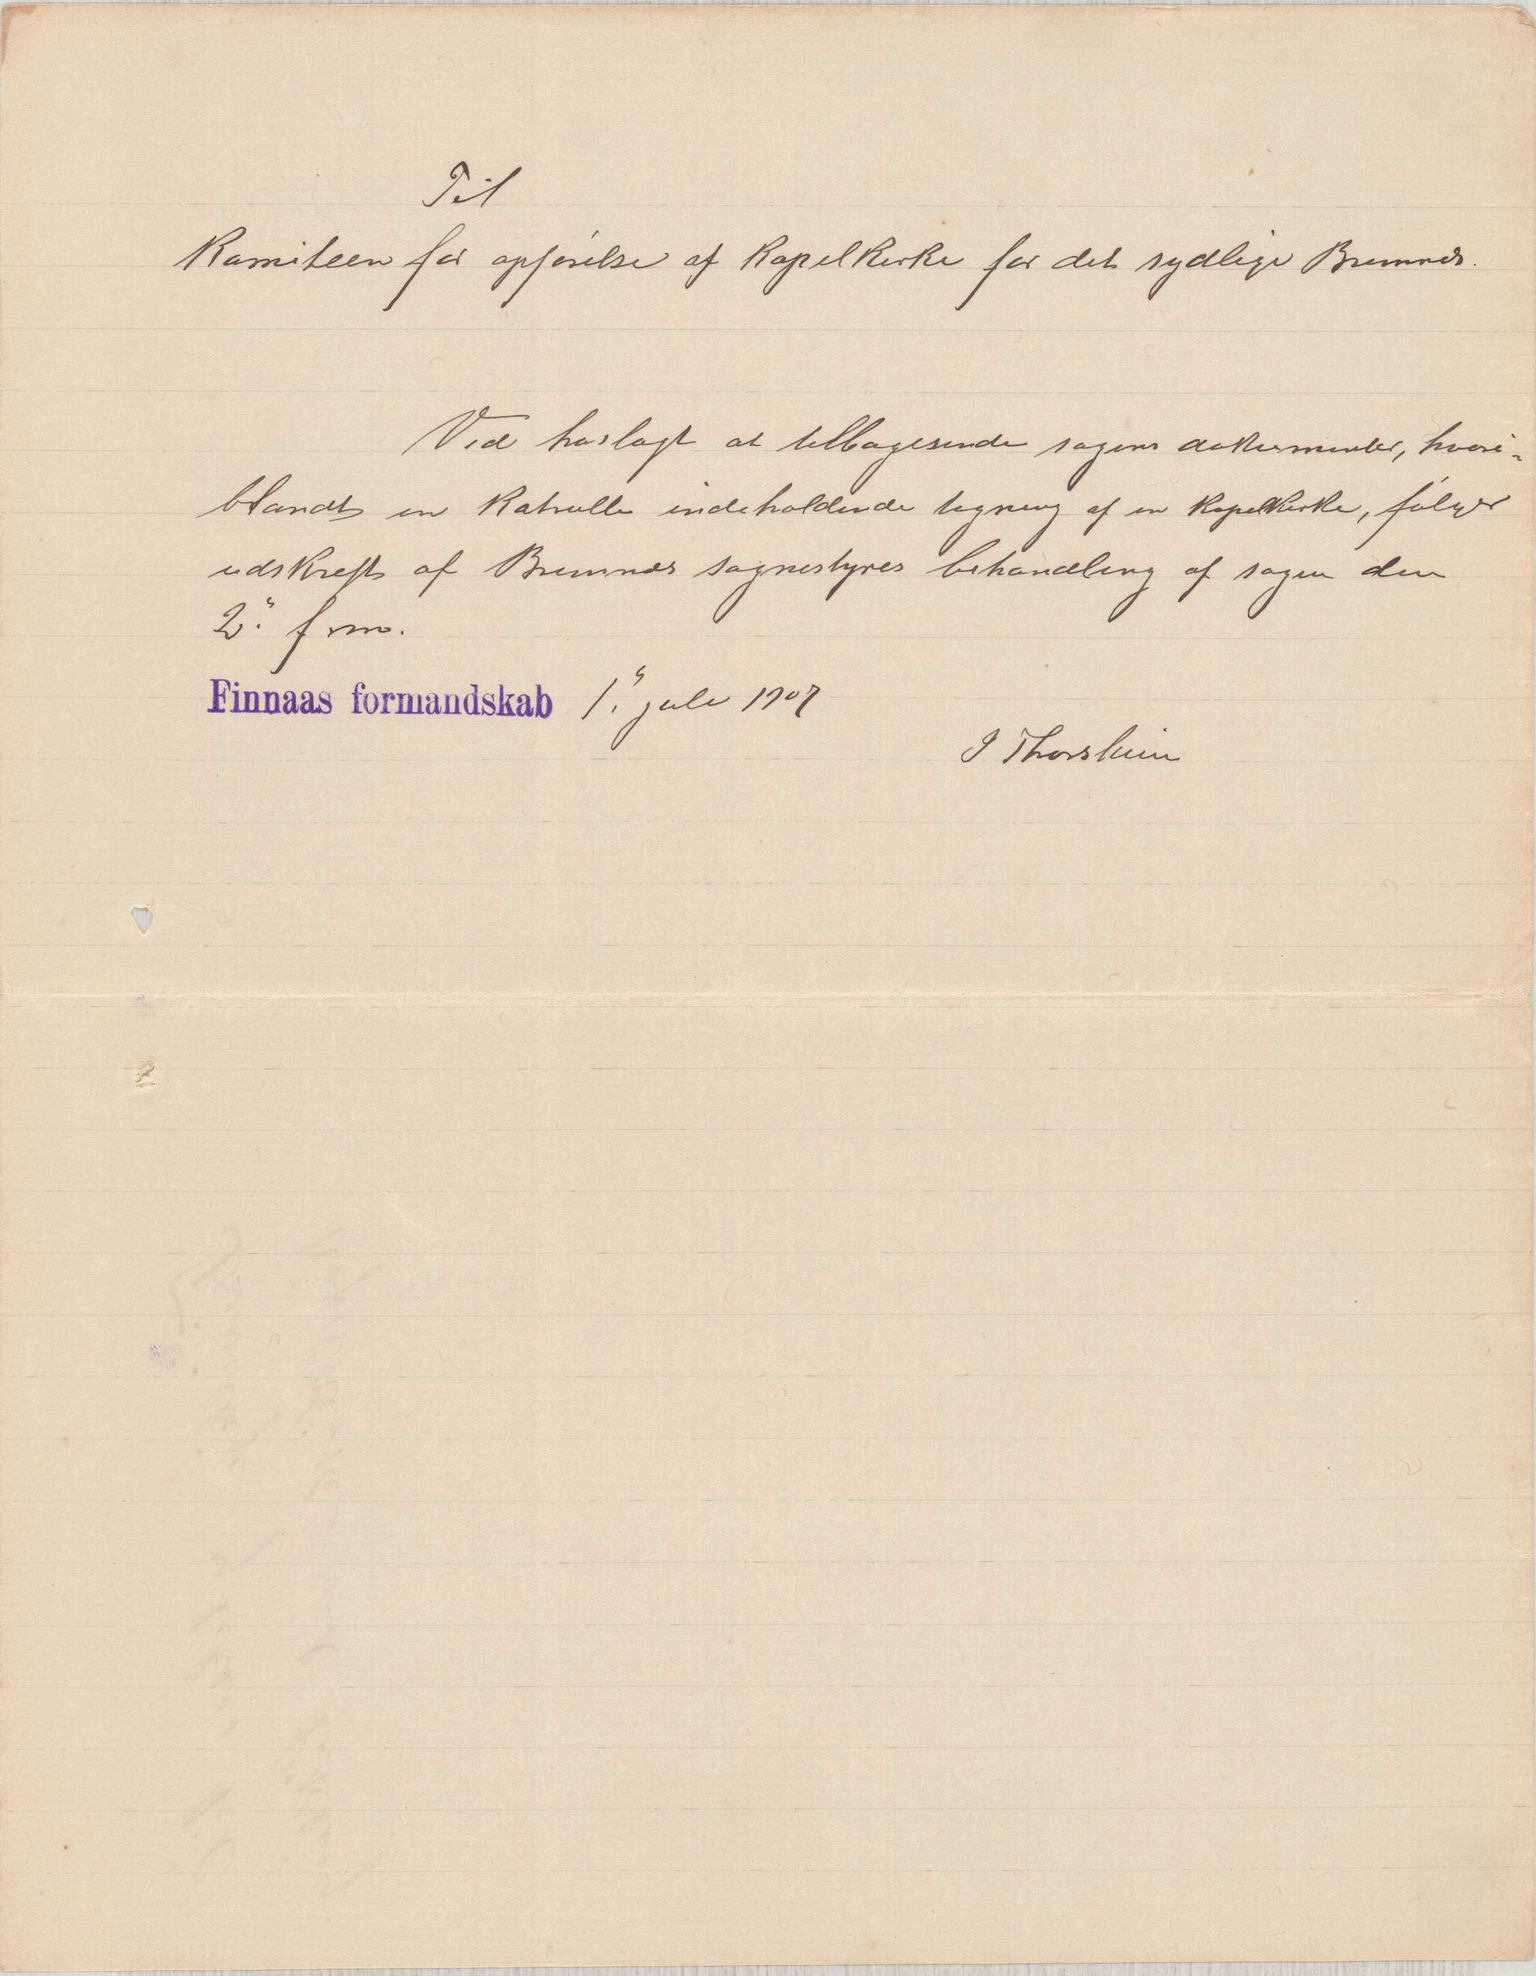 Til
Komiteen for opførelse af Kapelkirke for det sydlige Bremnes.
Ved hoslagt at tilbagesende sagens dokumenter, hvori-
blandt en Katrulle indeholdende tegning af en Kapelkirke, følger
udskrift af Bremnes sognestyres behandling af sagen den
2. f. m.
Finnaas formandskab 1. juli 1907
J Thorsheim